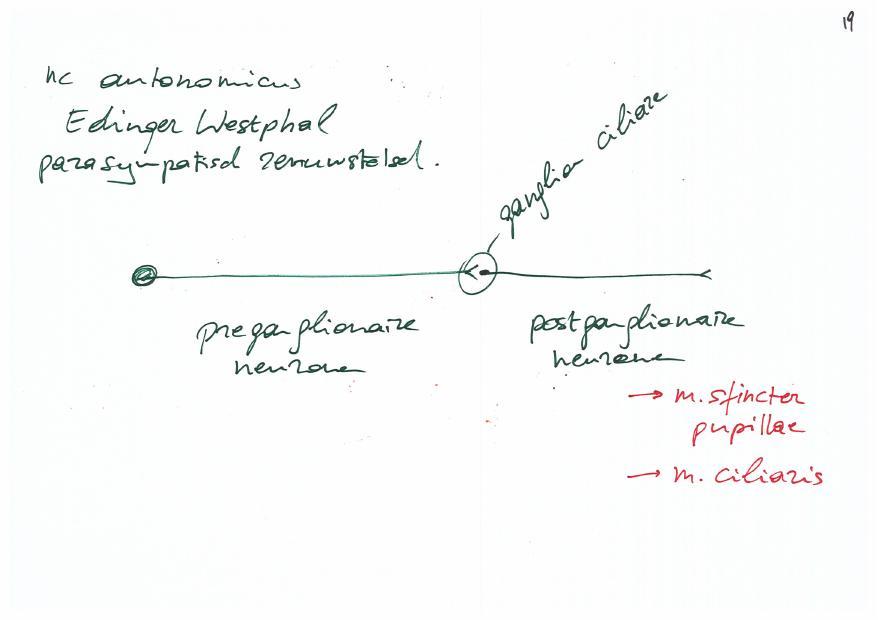 19
nc autonomicus
Edinger Westphal
parasympatisch zenuwstelsel.
ganglion ciliare
preganglionaire
neuronen
postganglionaire
neuronen
→ m. sfincter
pupillae
→ m. ciliaris